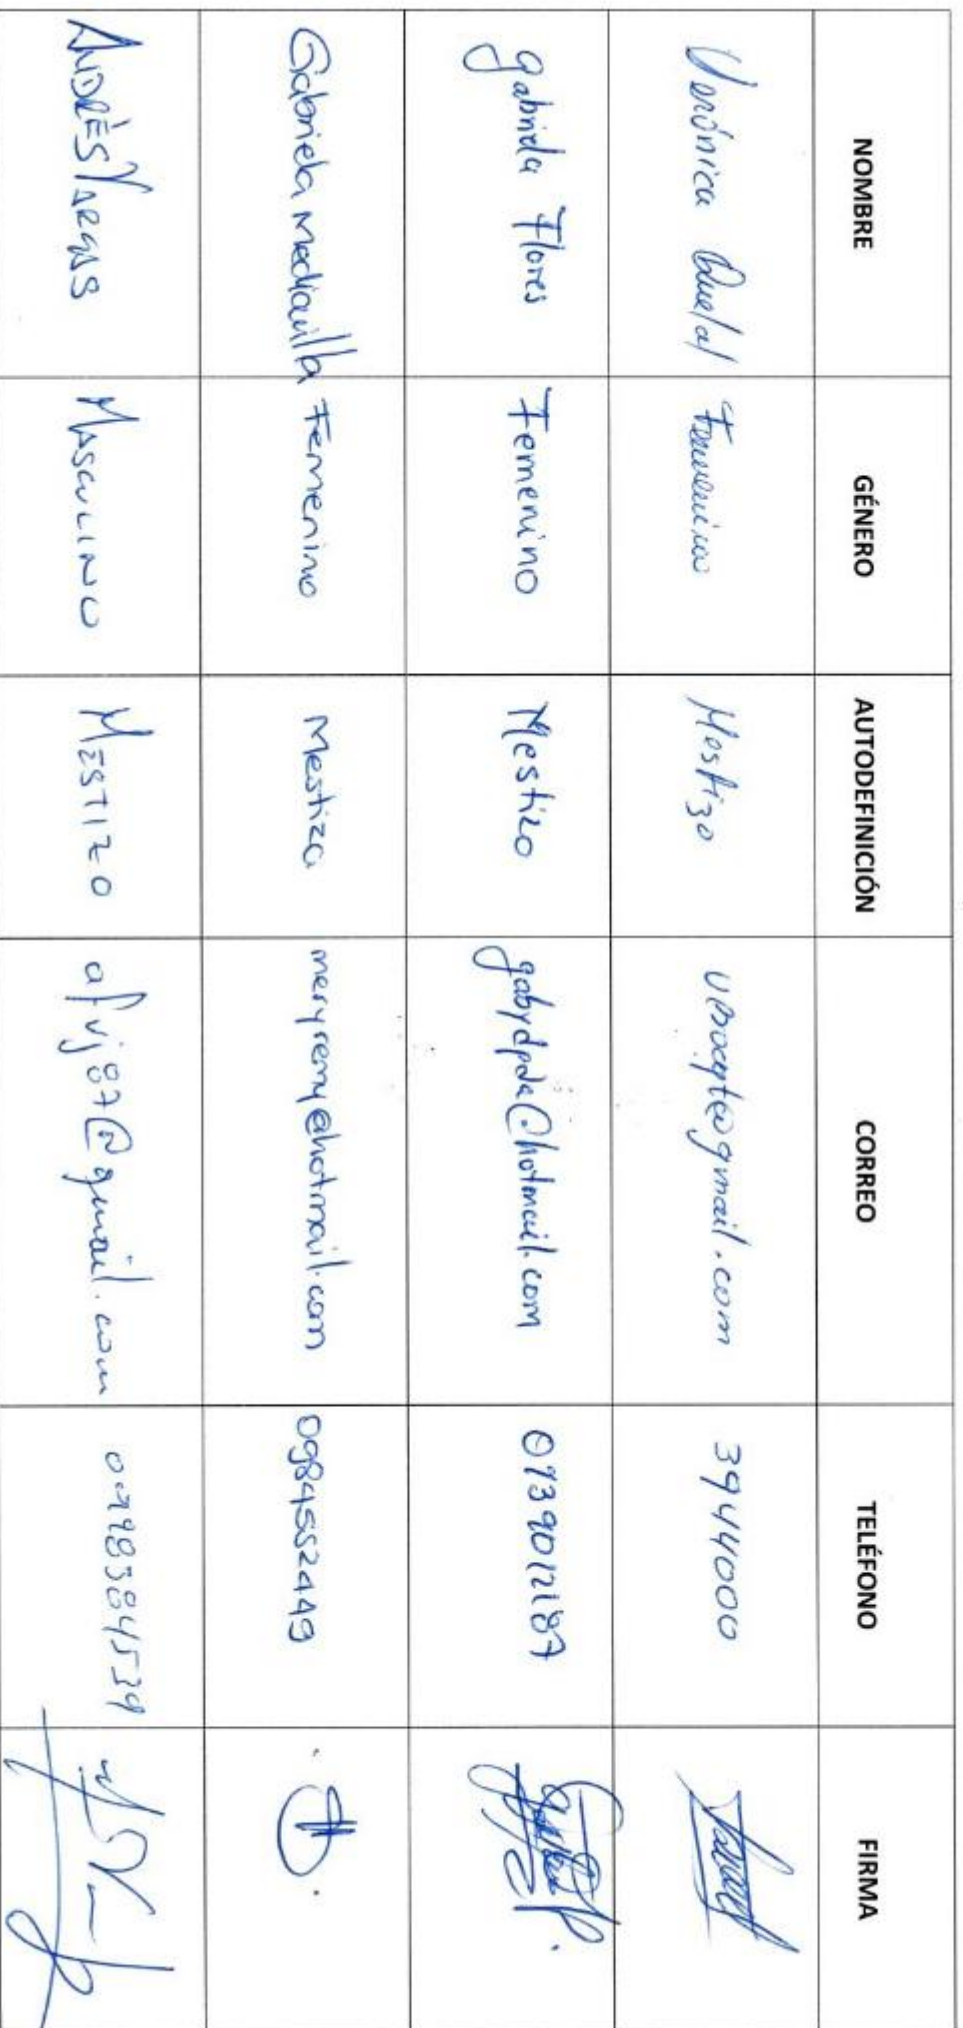 NOMBRE GÉNERO AUTODEFINICIÓN CORREO TELÉFONO FIRMA
Verónica Quelal Femenino Mestizo gmail.com 3944000
Gabriela Flores Femenino Mestizo gabydpda@hotmail.com
Gabriela Mediavilla Femenino Mestiza meryremy@hotmail.com 0984552449
ANDRÉS VARGAS MASCULINO MESTIZO afvj87@gmail.com 0998384539